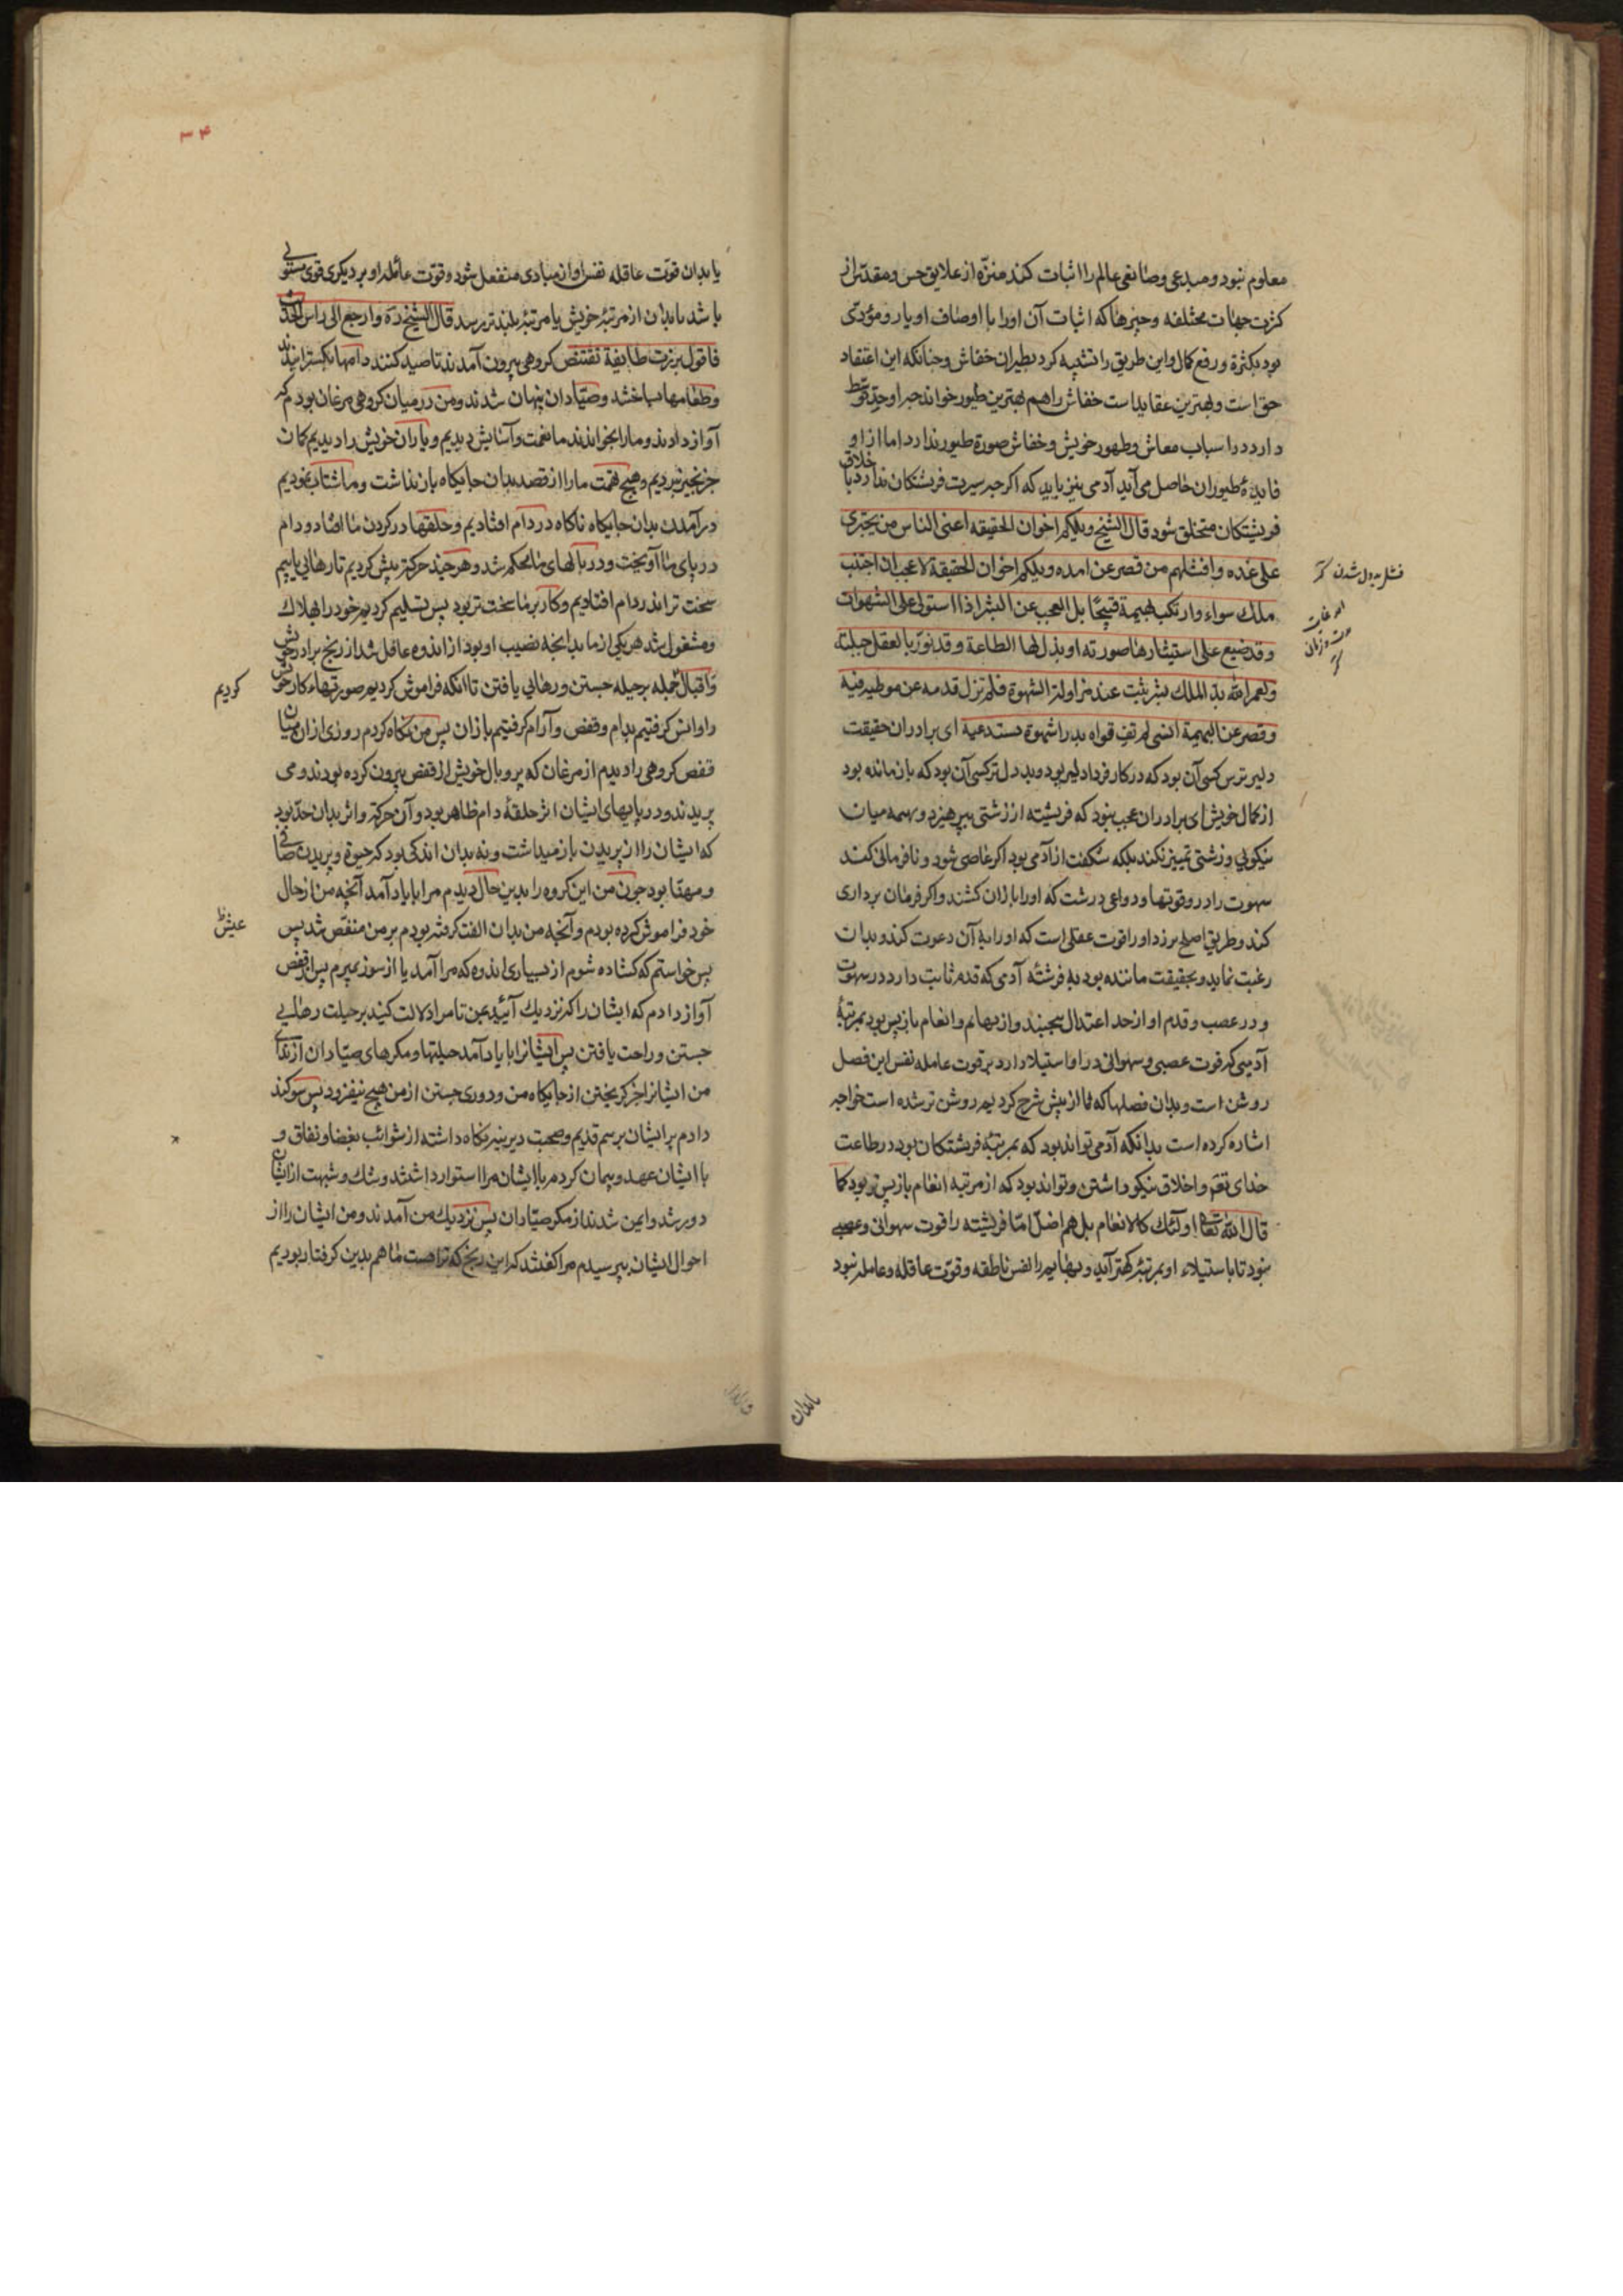 معلوم نبود و مبدعی و صانعی عالم را اثبات کند منزّه از علایق حس و مقدّس از
کثرت جهات مختلفه و چیزها که اثبات آن اورا با اوصاف او یار و مؤدّی
بود بکثرة و رفع کمال و این طریق را تشبیه کرد بطیران خفاش و چنانکه این اعتقاد
حق است و بهترین عقایداست خفاش را هم بهترین طیور خواند چه او حدّ توسّط
دارد در اسباب معاش و ظهور خویش و خفاش صورة طیور ندارد اما از او
فایدهٔ طیوران حاصل می آید آدمی نیز باید که اکر چه سیرت فرشتکان ندارد باخلاق
فریشتکان متخلق شود قال الشیخ ویلکم اخوان الحقیقه اغنی الناس من یجتری
علی غده و افشلهم من قصر عن امده ویلکم اخوان الحقیقة لا عجب ان اجتنب
ملك سواء و ارتکب بهیمة قبیحًا بل العجب عن البشر اذا استولی علی الشهوات
وقد ضیع علی استیثارها صورته او بذل لها الطاعة وقد نوّر بالعقل جبلته
ولعمر الله بذّ الملك بشر یثبت عند مزاولة الشهوة فلم تزل قدمه عن موطیه فیه
وقصر عن البهیمة انسی لم تف قواه بدرا شهوة تستدعیه ای برادران حقیقت
دلیرترین کسی آن بود که در کار فردا دلیر بود و بد دل تر کسی آن بود که بازمانده بود
از کمال خویش ای برادران عجب نبود که فریشته از زشتی بپرهیزد و بهیمه میان
نیکویی و زشتی تمییز نکند بلکه شکفت از آدمی بود اکر عاصی شود و نافرمانی کند
شهوت را در و قوتها و دواعی درشت که اورا بازان کشند و اکر فرمان برداری
کند و طریق اصلح برزد اورا قوت عقلی است که اورا بهٔ آن دعوت کند و بدان
رغبت نماید و بحقیقت ماننده بود بهٔ فرشتهٔ آدمی که قدم ثابت دارد در شهوت
و در غضب و قدم او از حد اعتدال نجنبد و از بهائم و انعام بازپس بود بمرتبهٔ
آدمیی که قوت غضبی و شهوانی در او استیلا دارد بر قوت عامله نفس این فصل
روشن است و بدان فصلها که ما از پیش شرح کردیم روشن تر شده است خواجه
اشاره کرده است بدانکه آدمی تواند بود که بمرتبهٔ فریشتکان بود در طاعت
خدای تعم و اخلاق نیکو داشتن و تواند بود که از مرتبه انعام بازپس تر بود کما
قال الله تعا اولئك کالانعام بل هم اضلّ امّا فریشته را قوت شهوانی و غضبی
نبود تا باستیلاء او بمرتبهٔ کهتر آید و بهایم را نفس ناطقه و قوّت عاقله و عامله نبود
فشل بددل شدن
یابدان
۳۴
یا بدان قوّت عاقله نفس او از مبادی منفعل شود و قوّت عامله او بر دیکری قوی مستولی
باشد تا بدان از مرتبهٔ خویش با مرتبهٔ بلندتر رسد قال الشیخ ره وارجع الی راس الحدیث
فاقول برزت طایفة تقتنص کروهی بیرون آمدند تا صید کنند دامها بکسترانیدند
و طعامها بپاخشد و صیّادان پنهان شدند و من در میان کروهی مرغان بودم که
آواز دادند و مارا بخواندند ما نعمت و آسایش دیدیم و یاران خویش را دیدیم کمان
جز بخیر نبردیم و هیچ تهمت مارا از قصد بدان جایکاه بازنداشت و ما شتاب نمودیم
درآمدن بدان جایکاه ناکاه در دام افتادیم و حلقها در کردن ما افتاد و دام
در پای ما آویخت و در بالهای ما محکم شد و هر چند حرکة بیش کردیم تا رهائی یابیم
سخت تر اندر دام افتادیم و کار بر ما سخت تر بود پس تسلیم کردیم خود را بهلاك
و مشغول شد هر یکی از ما بدانچه نصیب او بود از اندوه غافل شد از رنج برادر خویش
و اقبال جمله بر حیله جستن و رهایی یافتن تا آنکه فراموش کردیم صورتهاء کار خویش
کردیم
را و انس کرفتیم بدام و قفص و آرام کرفتیم بازان پس من نکاه کردم روزی از ان میان
قفص کروهی را دیدم از مرغان که پر و بال خویش از قفص بیرون کرده بودند و می
پریدند و در پایهای ایشان اثر حلقهٔ دام ظاهر بود و آن حرکة و اثر بدان حدّ نبود
که ایشان را از پریدن بازمیداشت و نه بدان اندکی بود که حیوة و پریدن صافی
و مهنّا بود چون من این کروه را بدین حال دیدم مرا با یاد آمد آنچه من از حال
خود فراموش کرده بودم و آنچه من بدان الفت کرفته بودم بر من منغّص شد پس
عیش
پس خواستم که کشاده شوم از بسیاری اندوه که مرا آمد یا از سوز بمیرم پس از قفص
آواز دادم که ایشان را که نزدیك آئید بمن تا مرا دلالت کنید بر حیلت رهایی
جستن و راحت یافتن پس ایشانرا با یاد آمد حیلتها و مکرهای صیّادان از ندای
من ایشانرا جز کریختن از جایکاه من و دوری جستن از من هیچ نیفزود پس سوکند
دادم بر ایشان برسم قدیم و صحبت دیرینه نکاه داشته از شوائب بغضا و نفاق و
با ایشان عهد و پیمان کردم با ایشان مرا استوار داشتند و شك و شبهت از ایشان
دور شد و ایمن شدند از مکر صیّادان پس نزدیك من آمدند و من ایشان را از
احوال ایشان بپرسیدم مرا کفتند که این رنج که تراهست ما هم بدین کرفتار بودیم